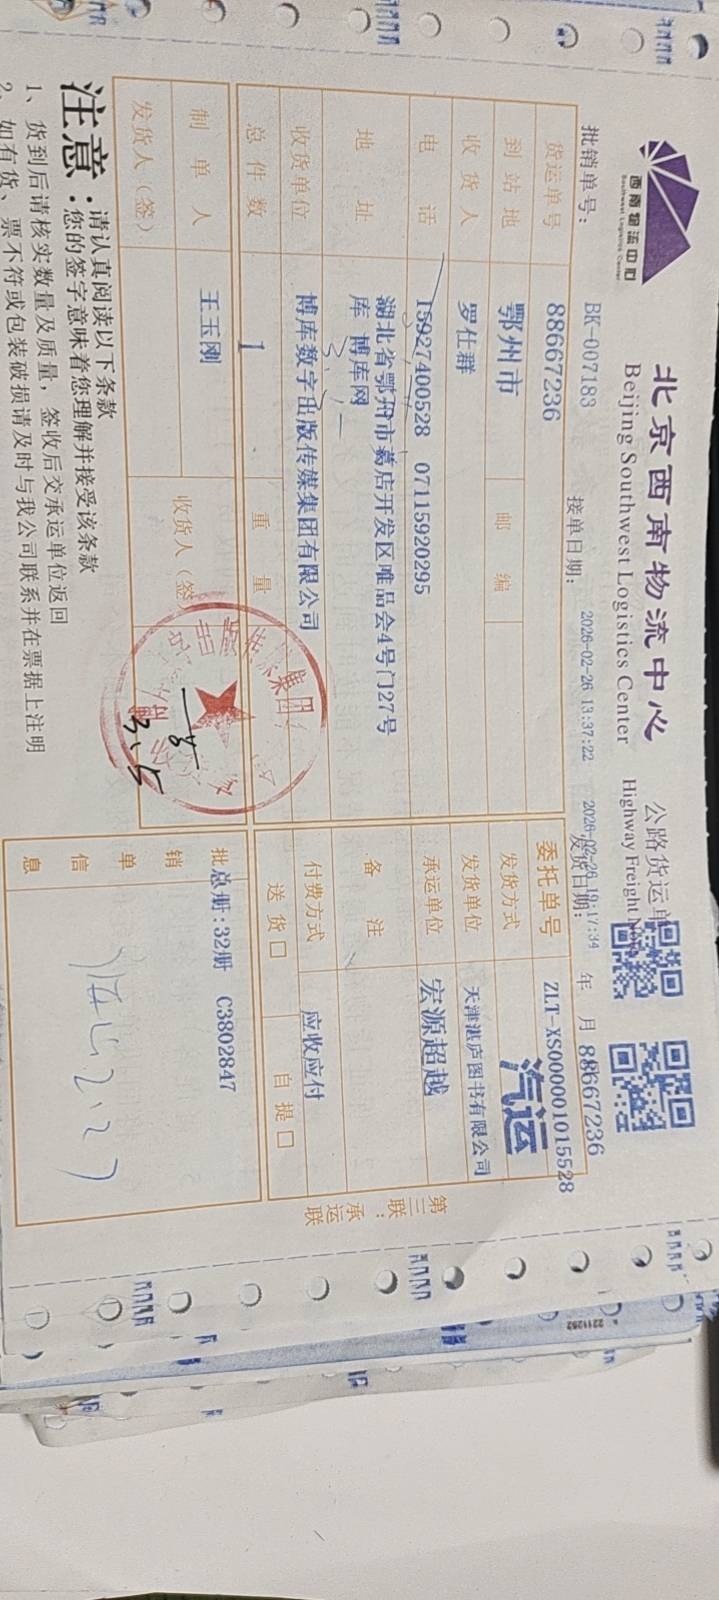 西南物流中心
Southwest Logistics Center
北京西南物流中心 公路货运单
Beijing Southwest Logistics Center Highway Freight
批销单号: BK-007183 接单日期: 2026-02-26 13:37:22 发货日期: 2026-02-26 19:17:34 年 月
88667236
货运单号 88667236 委托单号 ZLT-XS000001015528
到站地 鄂州市 邮编 发货方式 汽运
收货人 罗仕群 发货单位 天津湛庐图书有限公司
电话 15927400528 07115920295 承运单位 宏源超越
地址 湖北省鄂州市葛店开发区唯品会4号门27号
库 博库网 备注
收货单位 博库数字出版传媒集团有限公司 付费方式 应收应付
总件数 1 重量 送货□ 自提□
制单人 王玉刚 收货人(签)
发货人(签)
批销单信息 总册:32册 C3802847
第三联:承运联
出版传媒集团
注意:
请认真阅读以下条款
您的签字意味着您理解并接受该条款
1、货到后请核实数量及质量,签收后交承运单位返回
2、如有货、票不符或包装破损请及时与我公司联系并在票据上注明